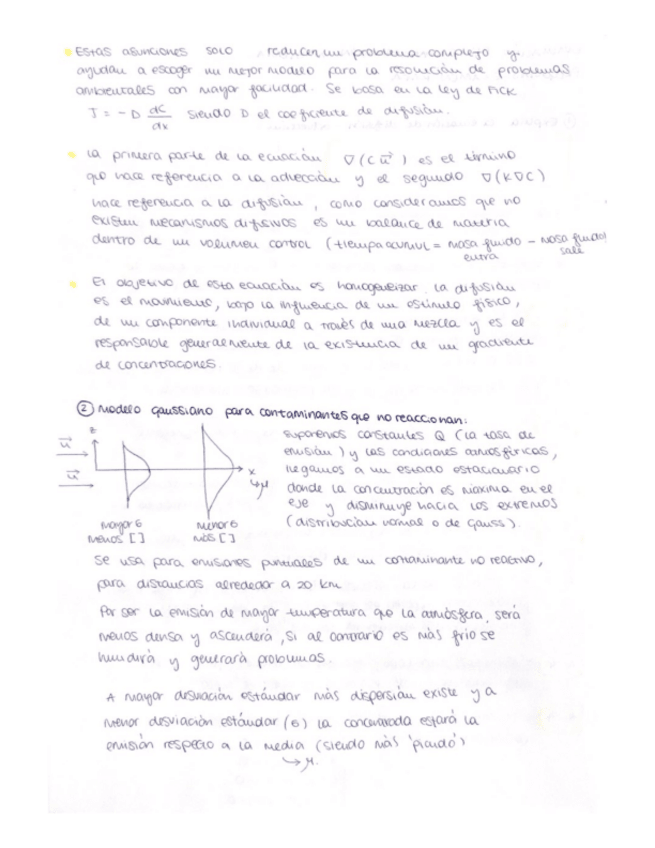 Estas asunciones solo reducen un problema complejo y
ayudan a escoger un mejor modelo para la resolución de problemas
ambientales con mayor facilidad. Se basa en la ley de Fick
J = - D dC/dx siendo D el coeficiente de difusión.
La primera parte de la ecuación ∇(C u⃗) es el término
que hace referencia a la advección y el segundo ∇(KDC)
hace referencia a la difusión, como consideramos que no
existen mecanismos difusivos es un balance de materia
dentro de un volumen control (tiempo acumul = masa fluido entra - masa fluido sale
El objetivo de esta ecuación es homogeneizar. La difusión
es el movimiento, bajo la influencia de un estímulo físico,
de un componente individual a través de una mezcla y es el
responsable generalmente de la existencia de un gradiente
de concentraciones.
② Modelo gaussiano para contaminantes que no reaccionan:
suponemos constantes Q (la tasa de
emisión) y las condiciones atmosféricas,
llegamos a un estado estacionario
donde la concentración es máxima en el
eje y disminuye hacia los extremos
(distribución normal o de Gauss).
u⃗
z
u⃗
x
↳μ
Mayor σ
menos []
Menor σ
más []
Se usa para emisiones puntuales de un contaminante no reactivo,
para distancias alrededor a 20 km
Por ser la emisión de mayor temperatura que la atmósfera, será
menos densa y ascenderá, si al contrario es más frío se
hundirá y generará problemas.
A mayor desviación estándar más dispersión existe y a
menor desviación estándar (σ) la concentrada estará la
emisión respecto a la media (siendo más 'picudo')
↳ μ.